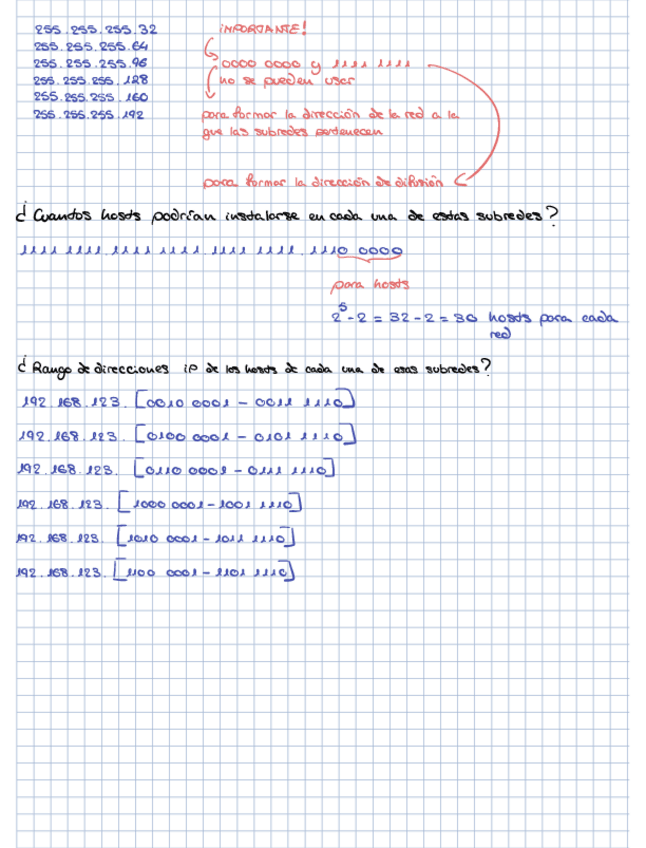 255.255.255.32
255.255.255.64
255.255.255.96
255.255.255.128
255.255.255.160
255.255.255.192
¡IMPORTANTE!
0000 0000 y 1111 1111
no se pueden usar
para formar la dirección de la red a la
que las subredes pertenecen
para formar la dirección de difusión
¿Cuantos hosts podrían instalarse en cada una de estas subredes?
1111 1111.1111 1111.1111 1111.1110 0000
para hosts
2⁵-2 = 32-2 = 30 hosts para cada
red
¿Rango de direcciones IP de los hosts de cada una de esas subredes?
192.168.123.[0010 0001 - 0011 1110]
192.168.123.[0100 0001 - 0101 1110]
192.168.123.[0110 0001 - 0111 1110]
192.168.123.[1000 0001 - 1001 1110]
192.168.123.[1010 0001 - 1011 1110]
192.168.123.[1100 0001 - 1101 1110]